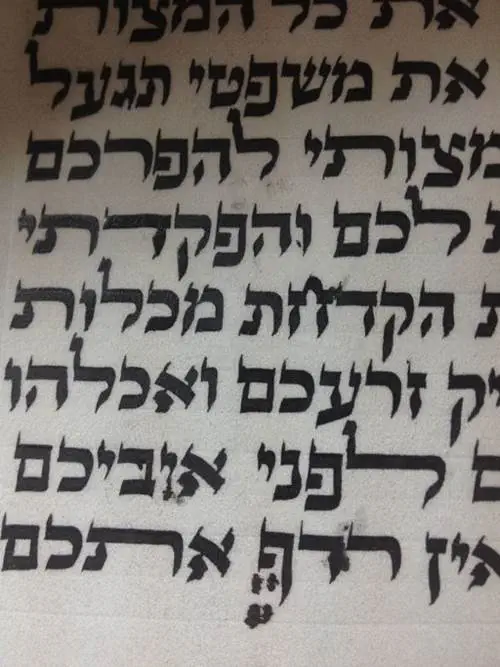 את כל המצות
את משפטי תגעל
מצותי להפרכם
ת לכם והפקדתי
ת הקדחת מכלות
יק זרעכם ואכלהו
ם לפני איביכם
אין רדף אתכם